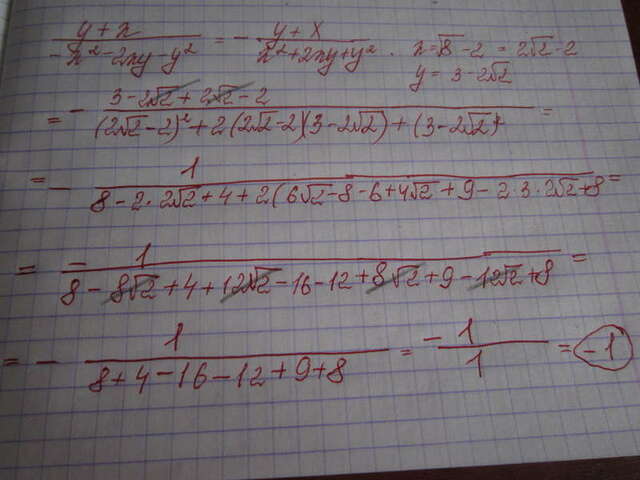 (y+x)/(-x²-2xy-y²) = - (y+x)/(x²+2xy+y²) . x=√8-2 = 2√2-2
y = 3-2√2
= - (3-2√2+2√2-2)/((2√2-2)²+2(2√2-2)(3-2√2)+(3-2√2)²) =
= - 1/(8-2·2√2+4+2(6√2-8-6+4√2+9-2·3·2√2+8) =
= - 1/(8-8√2+4+12√2-16-12+8√2+9-12√2+8) =
= - 1/(8+4-16-12+9+8) = -1/1 = -1